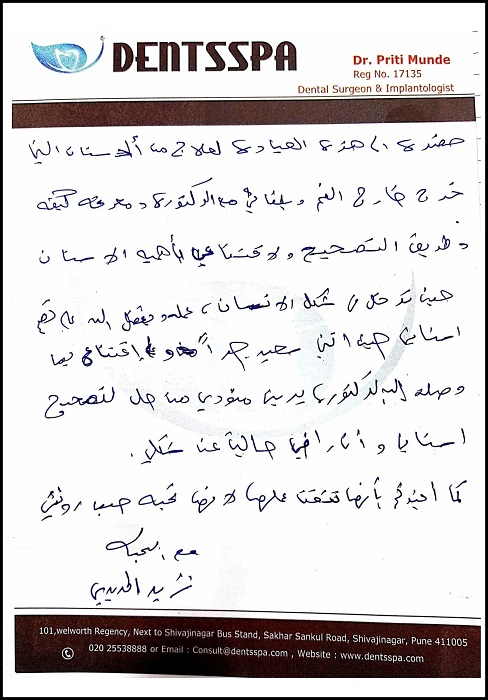 DENTSSPA
Dr. Priti Munde
Reg No. 17135
Dental Surgeon & Implantologist
حضرت الى هذه العيادة لعلاج من الاسنان التي
خرج خارج الفم و بلقائي مع الدكتورة و معرفة كيفه
و طريق التصحيح و لاقتناعي بأهمية الاسنان
حيث تدخل في شكل الانسان، بفضل الله تم
اسناني حيث انني سعيد جدا و اقتناع بما
وصلت إليه الدكتوره بريتي موندي من اجل لتصحيح
اسناني و أنا راضي حالياً عن شكلي.
كما أفيدكم بأنها تتقن عملها لانها تحبه حسب رؤيتي
مع
101,welworth Regency, Next to Shivajinagar Bus Stand, Sakhar Sankul Road, Shivajinagar, Pune 411005
020 25538888 or Email : Consult@dentsspa.com , Website : www.dentsspa.com